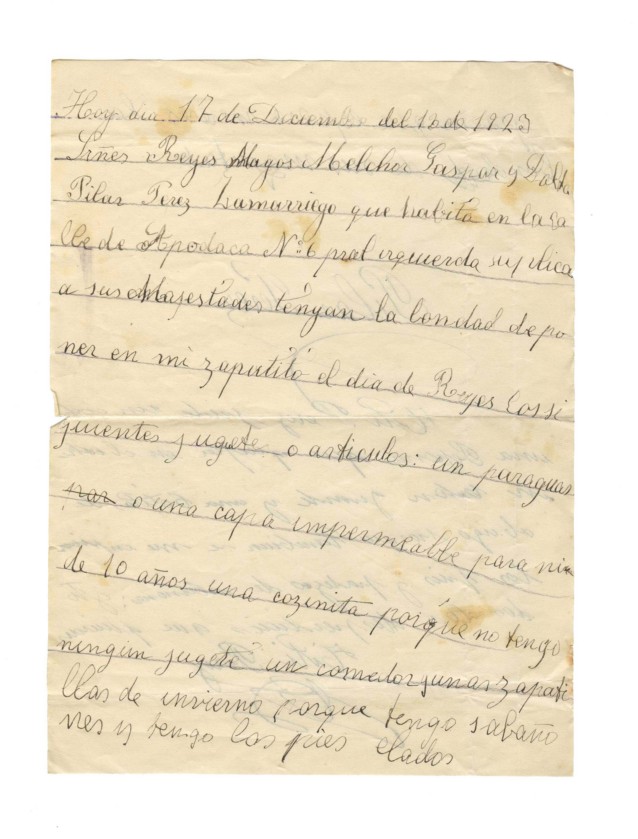 Hoy dia 17 de Diciembre del 12 de 1923
Srñes Reyes Magos Melchor Gaspar y Balta
Pilar Perez Lamurriego que habita en la ca
lle de Apodaca Nº 6 pral izquierda suplica
a sus Majestades tengan la bondad de po
ner en mi zapatito el dia de Reyes los si
juientes jugetes o articulos: un paraguas
o una capa impermeable para niña
de 10 años una cozinita porque no tengo
ningun jugete un comedor y unas zapati
llas de invierno porque tengo sabaño
nes y tengo los pies elados